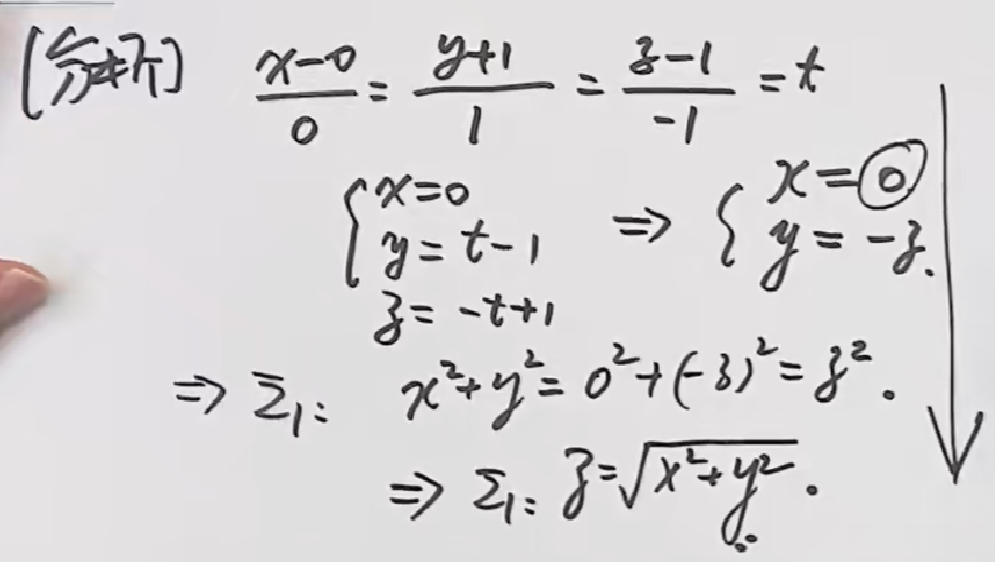 [分析] \frac{x-0}{0} = \frac{y+1}{1} = \frac{z-1}{-1} = t
{ x=0 y=t-1 z=-t+1 ⇒ { x=0 y=-z.
⇒ Σ₁: x²+y²=0²+(-z)²=z².
⇒ Σ₁: z=√(x²+y²).